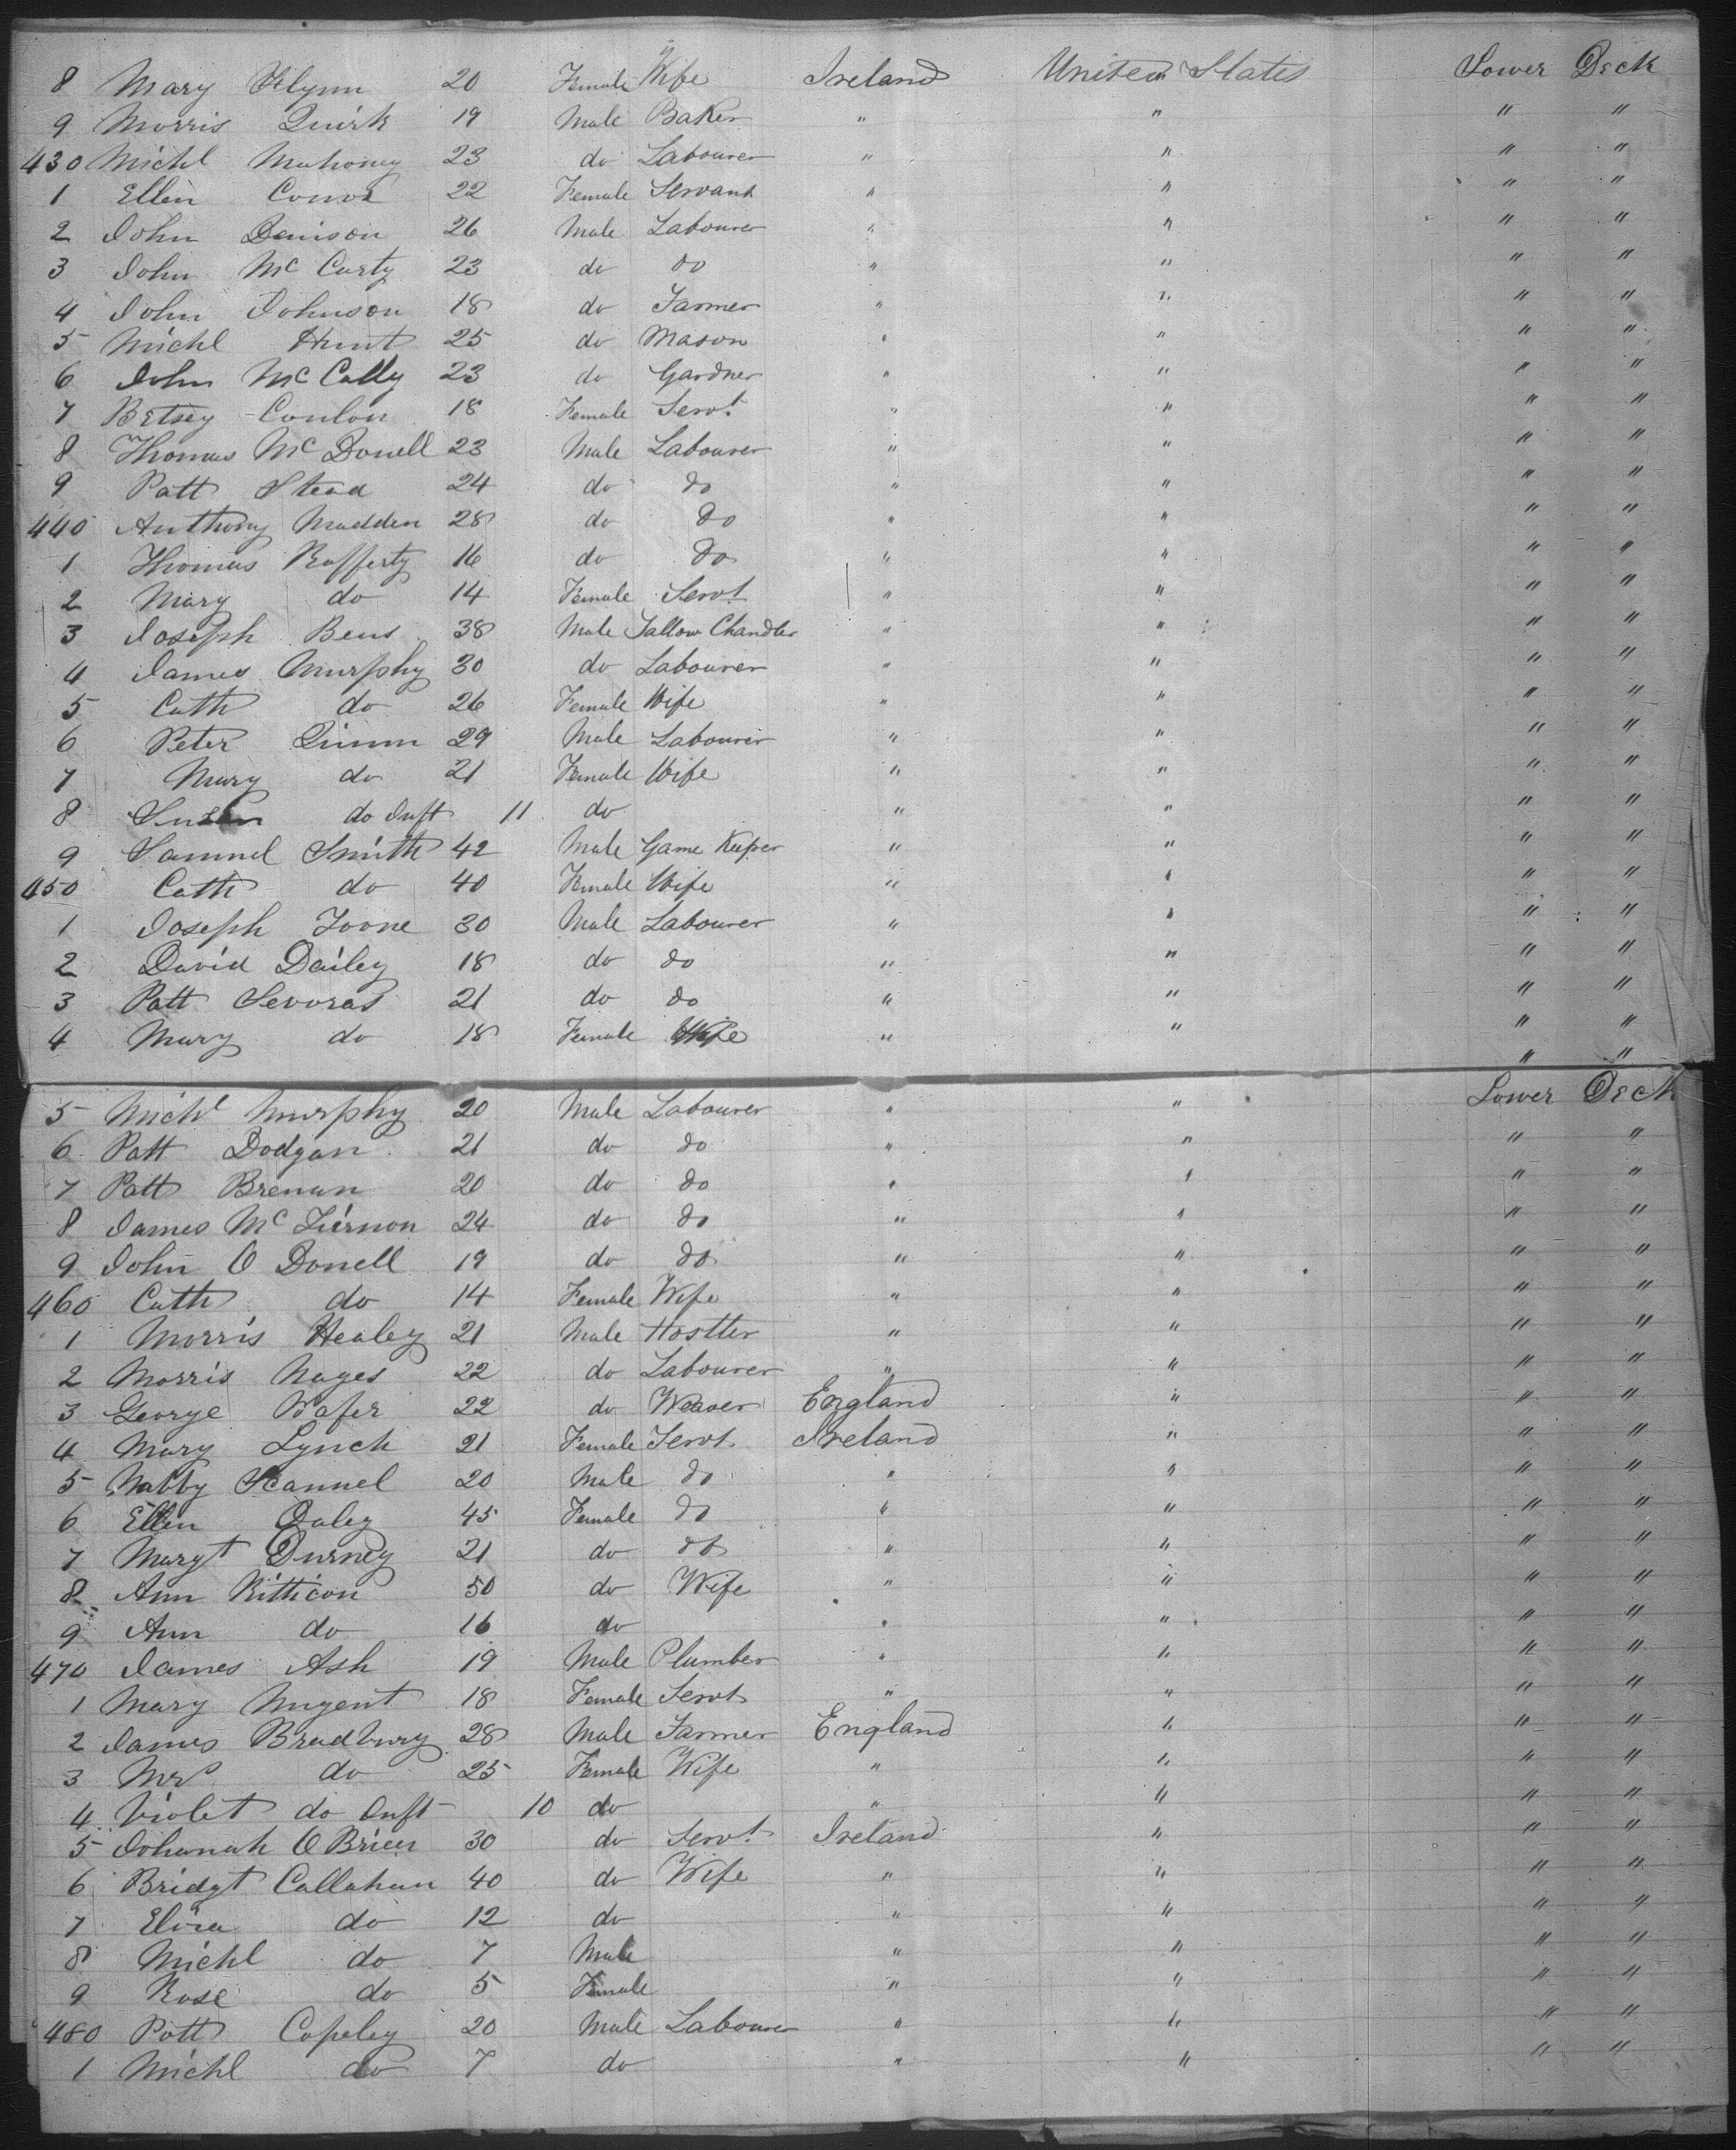 8 Mary Flynn 20 Female Wife Ireland United States Lower Deck
9 Morris Quirk 19 Male Baker " " " "
430 Michl Mahoney 23 do Labourer " " " "
1 Ellen Conor 22 Female Servant " " " "
2 John Denison 26 Male Labourer " " " "
3 John Mc Carty 23 do do " " " "
4 John Johnson 18 do Farmer " " " "
5 Michl Hunt 25 do Mason " " " "
6 John Mc Cally 23 do Gardner " " " "
7 Betsey Conlon 18 Female Servt " " " "
8 Thomas Mc Donell 23 Male Labourer " " " "
9 Patt Stead 24 do do " " " "
440 Anthony Madden 28 do do " " " "
1 Thomas Rafferty 16 do do " " " "
2 Mary do 14 Female Servt " " " "
3 Joseph Bens 38 Male Tallow Chandler " " " "
4 James Murphy 30 do Labourer " " " "
5 Cath do 26 Female Wife " " " "
6 Peter Quinn 29 Male Labourer " " " "
7 Mary do 21 Female Wife " " " "
8 Susan do Inft 11 do " " " "
9 Samuel Smith 42 Male Game Keeper " " " "
450 Cath do 40 Female Wife " " " "
1 Joseph Toone 30 Male Labourer " " " "
2 David Dailey 18 do do " " " "
3 Patt 21 do do " " " "
4 Mary do 18 Female Wife " " " "
" "
5 Michl Murphy 20 Male Labourer " " Lower Deck
6 Patt Dodgan 21 do do " " " "
7 Patt Brenan 20 do do " " " "
8 James Mc Tiernon 24 do do " " " "
9 John O Donell 19 do do " " " "
460 Cath do 14 Female Wife " " " "
1 Morris Healey 21 Male Hostler " " " "
2 Morris Nages 22 do Labourer " " " "
3 George Wafer 22 do Weaver England " " "
4 Mary Lynch 21 Female Servt Ireland " " "
5 Nabby Scannel 20 Male do " " " "
6 Ellen Daley 45 Female do " " " "
7 Margt Durney 21 do do " " " "
8 Ann Kitticon 50 do Wife " " " "
9 Ann do 16 do " " " "
470 James Ash 19 Male Plumber " " " "
1 Mary Nugent 18 Female Servt " " " "
2 James Bradbury 28 Male Farmer England " " "
3 Mrs do 25 Female Wife " " " "
4 Violet do Inft 10 do " " " "
5 Johanah O Brien 30 do Servt Ireland " " "
6 Bridgt Callahan 40 do Wife " " " "
7 Eliza do 12 do " " " "
8 Michl do 7 Male " " " "
9 Rose do 5 Female " " " "
480 Patt Copeley 20 Male Labourer " " " "
1 Michl do 7 do " " " "